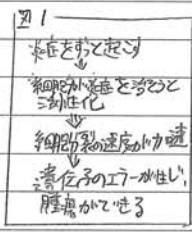 図1
炎症をずっと起こす
↓
細胞が炎症を治そうと
活性化
⇓
細胞分裂の速度が加速
⇓
遺伝子のエラーが生じ、
腫瘍ができる